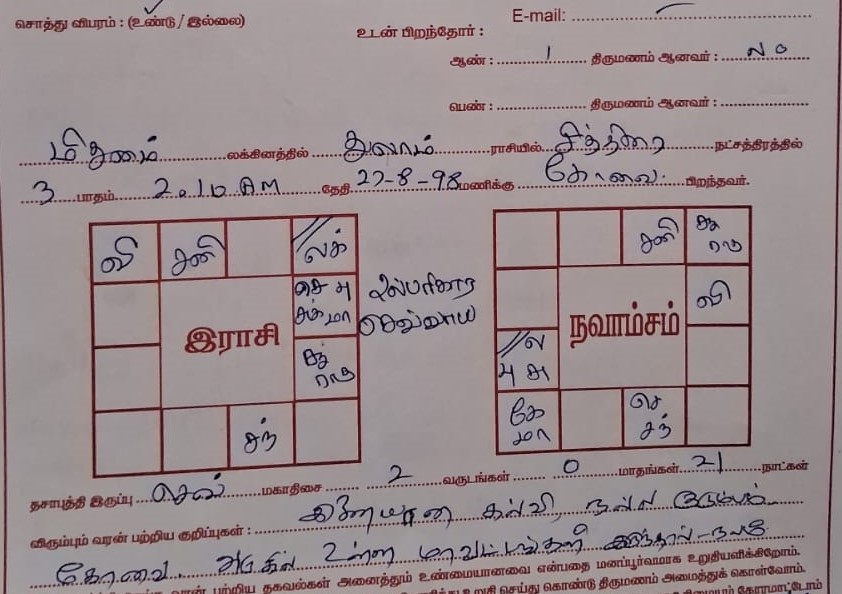 சொத்து விபரம் : (உண்டு / இல்லை)
E-mail:
உடன் பிறந்தோர் :
ஆண் : 1 திருமணம் ஆனவர் : No
பெண் : திருமணம் ஆனவர் :
மிதுனம் லக்கினத்தில் துலாம் ராசியில் சித்திரை நட்சத்திரத்தில்
3 பாதம் 2.10 AM தேதி 27-8-98 மணிக்கு கோவை. பிறந்தவர்.
வி சனி லக்
செ பு
சுக் மா
இராசி
சூ
ராகு
சந்
சனி சூ
ராகு
வி
நவாம்சம்
ல
பு சு
கே
மா
செ
சந்
தசாபுத்தி இருப்பு செவ் மகாதிசை 2 வருடங்கள் 0 மாதங்கள் 21 நாட்கள்
விரும்பும் வரன் பற்றிய குறிப்புகள் : இணையான கல்வி, நல்ல குடும்பம்
கோவை, அருகில் உள்ள மாவட்டங்களில் இருந்தால் நலம்
வரன் பற்றிய தகவல்கள் அனைத்தும் உண்மையானவை என்பதை மனப்பூர்வமாக உறுதியளிக்கிறோம்.
உறுதி செய்து கொண்டு திருமணம் அமைத்துக் கொள்வோம்.
கோரமாட்டோம்